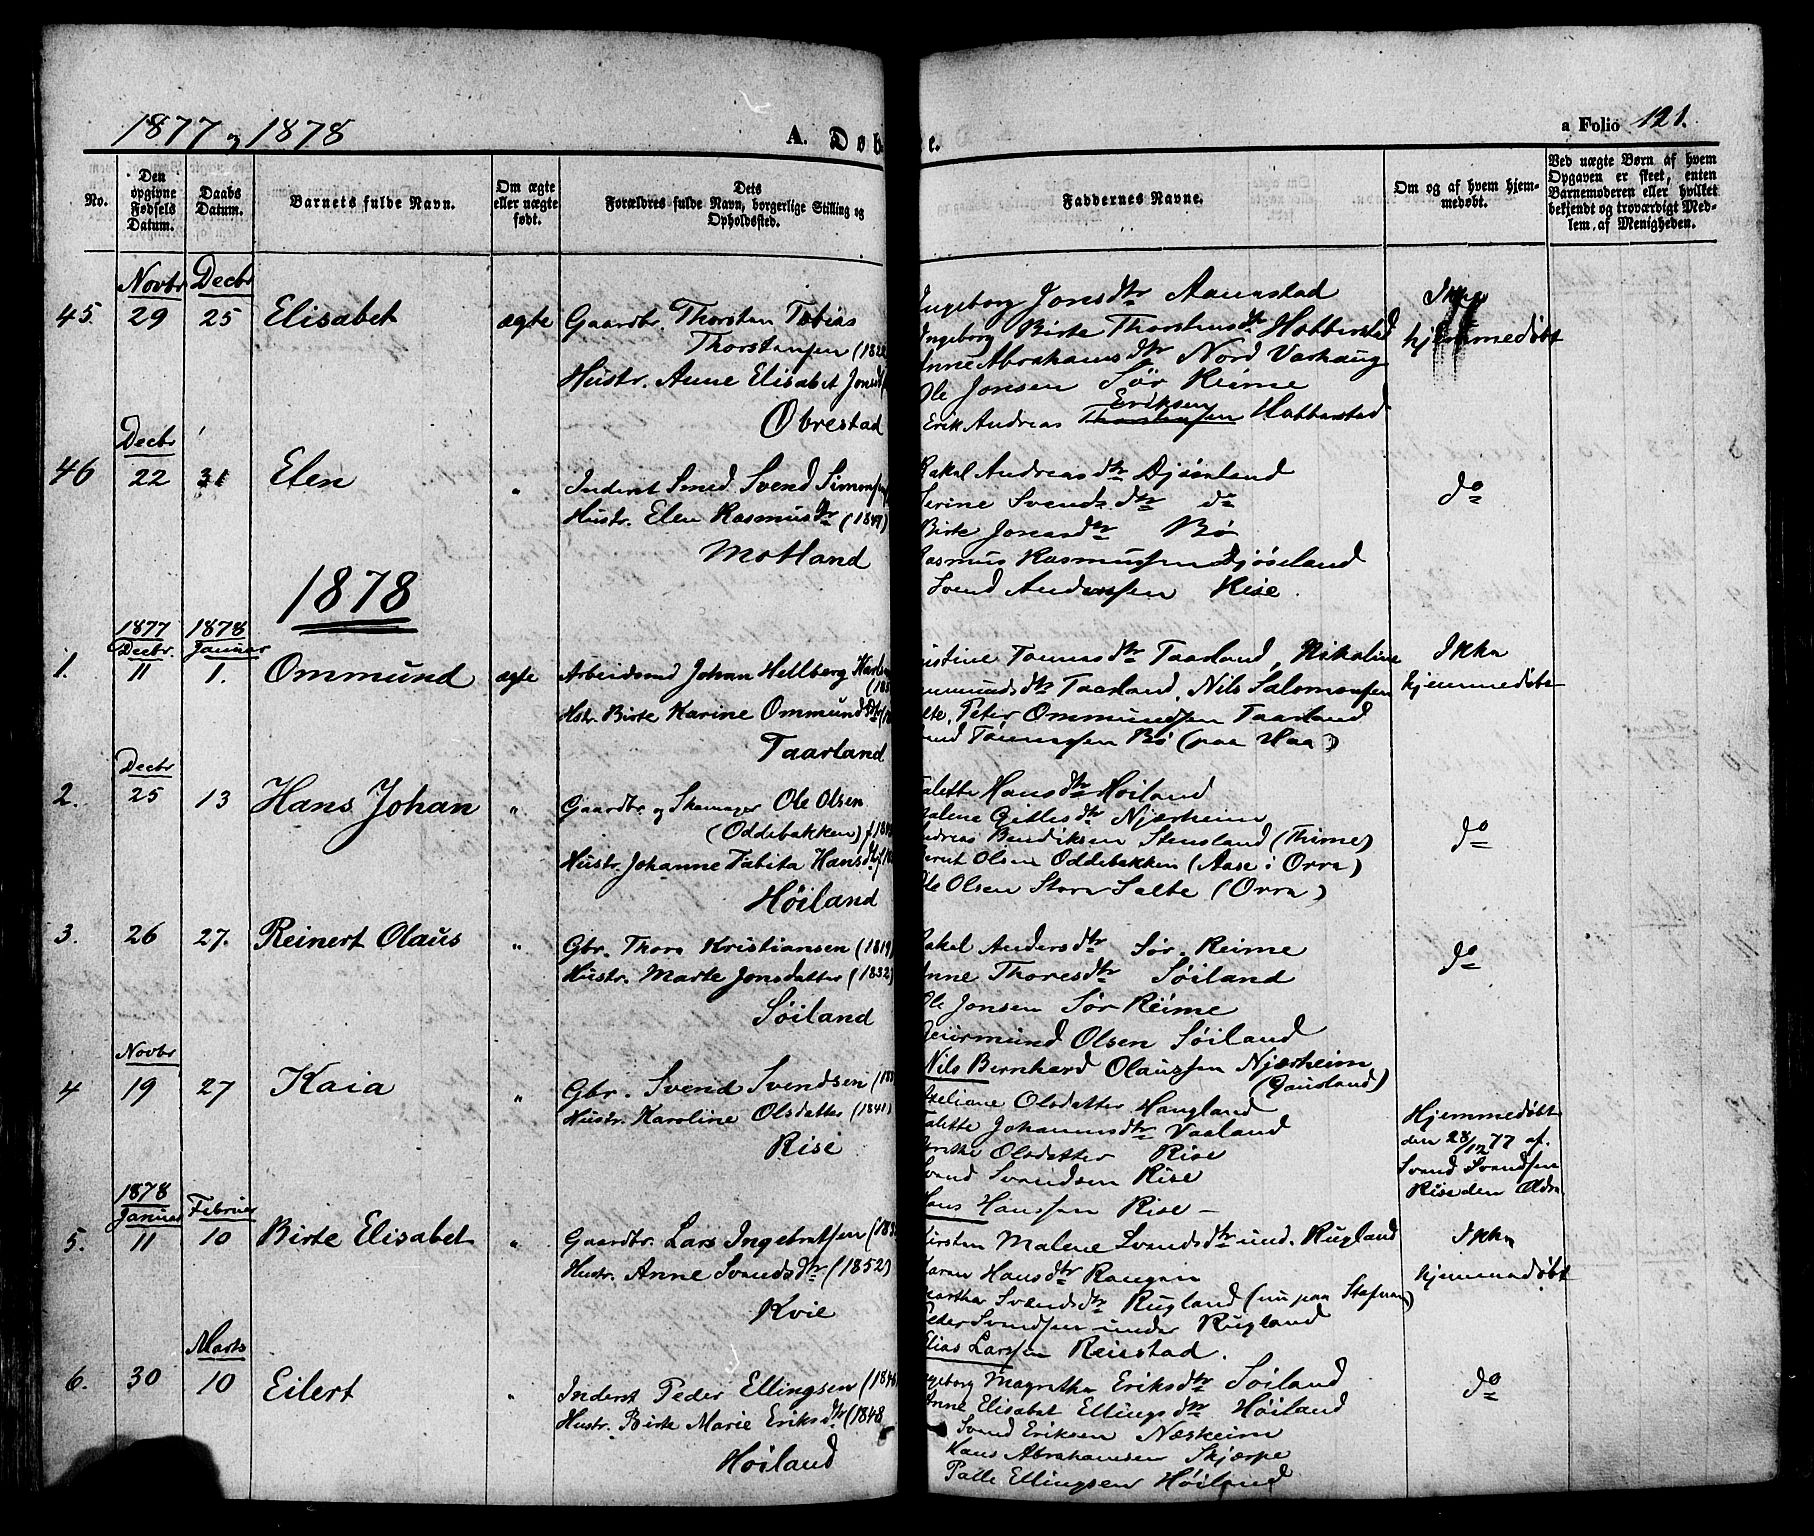 1877 og 1878
A. Døb
e.
a Folio 121.
No.
Den opgivne Fødsels Datum.
Daabs Datum.
Barnets fulde Navn.
Om ægte eller uægte født.
Dets Forældres fulde Navn, borgerlige Stilling og Opholdssted.
Faddernes Navne.
Om og af hvem hjemmedøbt.
Ved uægte Børn af hvem Opgaven er skeet, enten Barnemoderen eller hvilket bekjendt og troværdigt Medlem af Menigheden.
45. Novbr 29 Decbr 25 Elisabet ægte
Gaardbr. Thorsten Tobias
Thorstensen
Hustr. Anne Elisabet
Obrestad
Ingeborg Jonsdtr Aanestad
Ingeborg Birte Thorstensdtr Habberstad
Anne Abrahamsdtr Nord Varhaug
Ole Jonsen Sør Reime
Eriksen
Erik Andreas Thorstensen Habberstad
Ikke
hjemmedøbt
46 Decbr 22 31 Elen "
Inderst Smed Svend Simonsen
Hustr. Elen Rasmusdtr (1849)
Motland
Rakel Andreasdtr
Serine Svendsdtr do
Birte Jonasdtr Bø
Rasmus Rasmussen Djøseland
Svend Anderssen Rise.
do
1878
1. 1877 Decbr. 11 1878 Januar 1. Ommund ægte
Arbeidsmd Johan Hellberg
Hstr. Birte Karine Ommundsdtr
Taarland
Taarland, Nikoline
Taarland. Nils Salomonsen
Peter Ommundsen Taarland
Bø (paa Haa)
Ikke
hjemmedøbt
2. Decbr 25 13 Hans Johan "
Gaardbr og Skomager Ole Olsen
(Oddebakken)
Hustr. Johanne Tabita Hansdtr.
Høiland
Hansdtr Høiland
Malene Gitlesdtr Njærheim
Andreas Bendiksen Stensland (Thime)
Berut Olsen Oddebakken (Aase i Orre)
Ole Olsen Store Salte (Orre)
do
3. 26 27. Reinert Olaus "
Gbr. Thore Kristiansen (1819)
Hustr. Marte Jonsdatter (1832)
Søiland
Rakel Andersdtr Sør. Reime
Anne Thoresdtr Søiland
Ole Jonsen Sør Reime
Geirmund Olsen Søiland
Nils Bernhard Olaussen Njærheim
(Gausland)
do
4 Novbr 19 27 Kaia "
Gbr. Svend Svendsen
Hustr. Karoline Olsdatter (1841)
Rise
Olsdatter Haugland
Johannesdtr Vaaland
Olsdatter Rise
Svend Svendsen Rise
Hans Hanssen Rise –
Hjemmedøbt
den 28/12 77 af.
Svend Svendsen
Rise den Ældre
5. 1878 Januar 11 Februar 10 Birte Elisabet "
Gaardbr. Lars Ingebretsen
Hustr. Anne Svendsdtr (1852)
Kvie
Kirsten Malene Svendsdtr und. Rugland
Karen Hansdtr Rangen
Martha Svendsdtr Rugland
Peter Svendsen under Rugland
Elias Larssen Reiestad.
Ikke
hjemmedøbt
6. 30 Marts 10 Eilert "
Inderst Peder Ellingsen
Hustr. Birte Marie Eriksdtr (1848
Høiland
Ingeborg Magrethe Eriksdtr Søiland
Anne Elisabet Ellingsdtr Høiland
Svend Eriksen Næsheim
Hans Abrahamsen Skjærpe
Palle Ellingsen Høiland
do